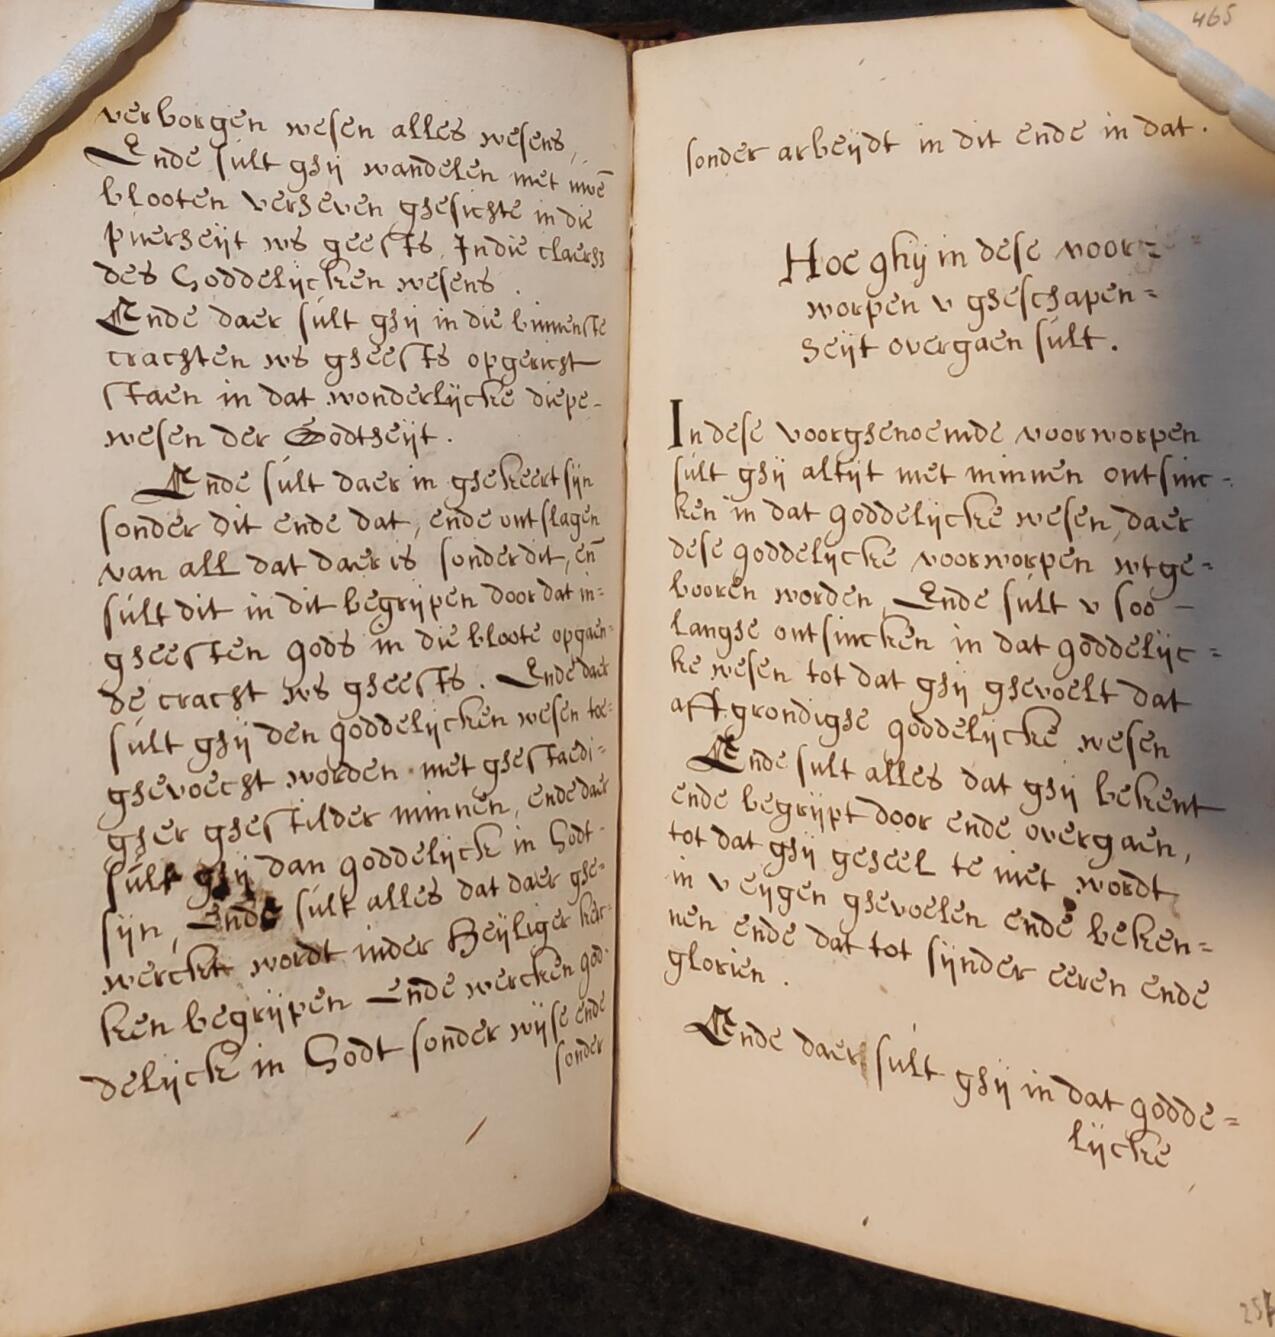 verborgen wesen alles wesens,
Ende sult ghij wandelen met uwē
blooten verheven ghesichte in die
puerheijt ws geests, In die claerh3
des Goddelijcken wesens.
Ende daer sult ghij in die binnenste
crachten ws gheests opgericht
staen in dat wonderlijcke diepe-
wesen der Godtheijt.
Ende sult daer in ghekeert sijn
sonder dit ende dat, ende ontslagen
van all dat daer is sonder dit, en̄
sult dit in dit begrijpen door dat in=
gheesten gods in die bloote opgaen=
de cracht ws gheests. Ende daer
sult ghij den goddelijcken wesen toe=
ghevoecht worden met ghestaedi=
gher ghestilder minnen, ende daer
sult ghij dan goddelijck in Godt-
sijn, Ende sult alles dat daer ghe=
werckt wordt inder Heijliger ker=
ken begrijpen Ende wercken god=
delijck in Godt sonder wijse ende
sonder
465
sonder arbeijdt in dit ende in dat.
Hoe ghij in dese voor=
worpen v gheschapen=
heijt overgaen sult.
In dese voorghenoemde voorworpen
sult ghij altijt met minnen ontsinc=
ken in dat goddelijcke wesen, daer
dese goddelijcke voorworpen wtge=
booren worden, Ende sult v soo-
langhe ontsincken in dat goddelijc=
ke wesen tot dat ghij ghevoelt dat
aftgrondighe goddelijcke wesen
Ende sult alles dat ghij bekent
ende begrijpt door ende overgaen,
tot dat ghij geheel te niet wordt,
in v eijgen ghevoelen ende beken=
nen ende dat tot sijnder eeren ende
glorien.
Ende daer sult ghij in dat godde=
lijcke